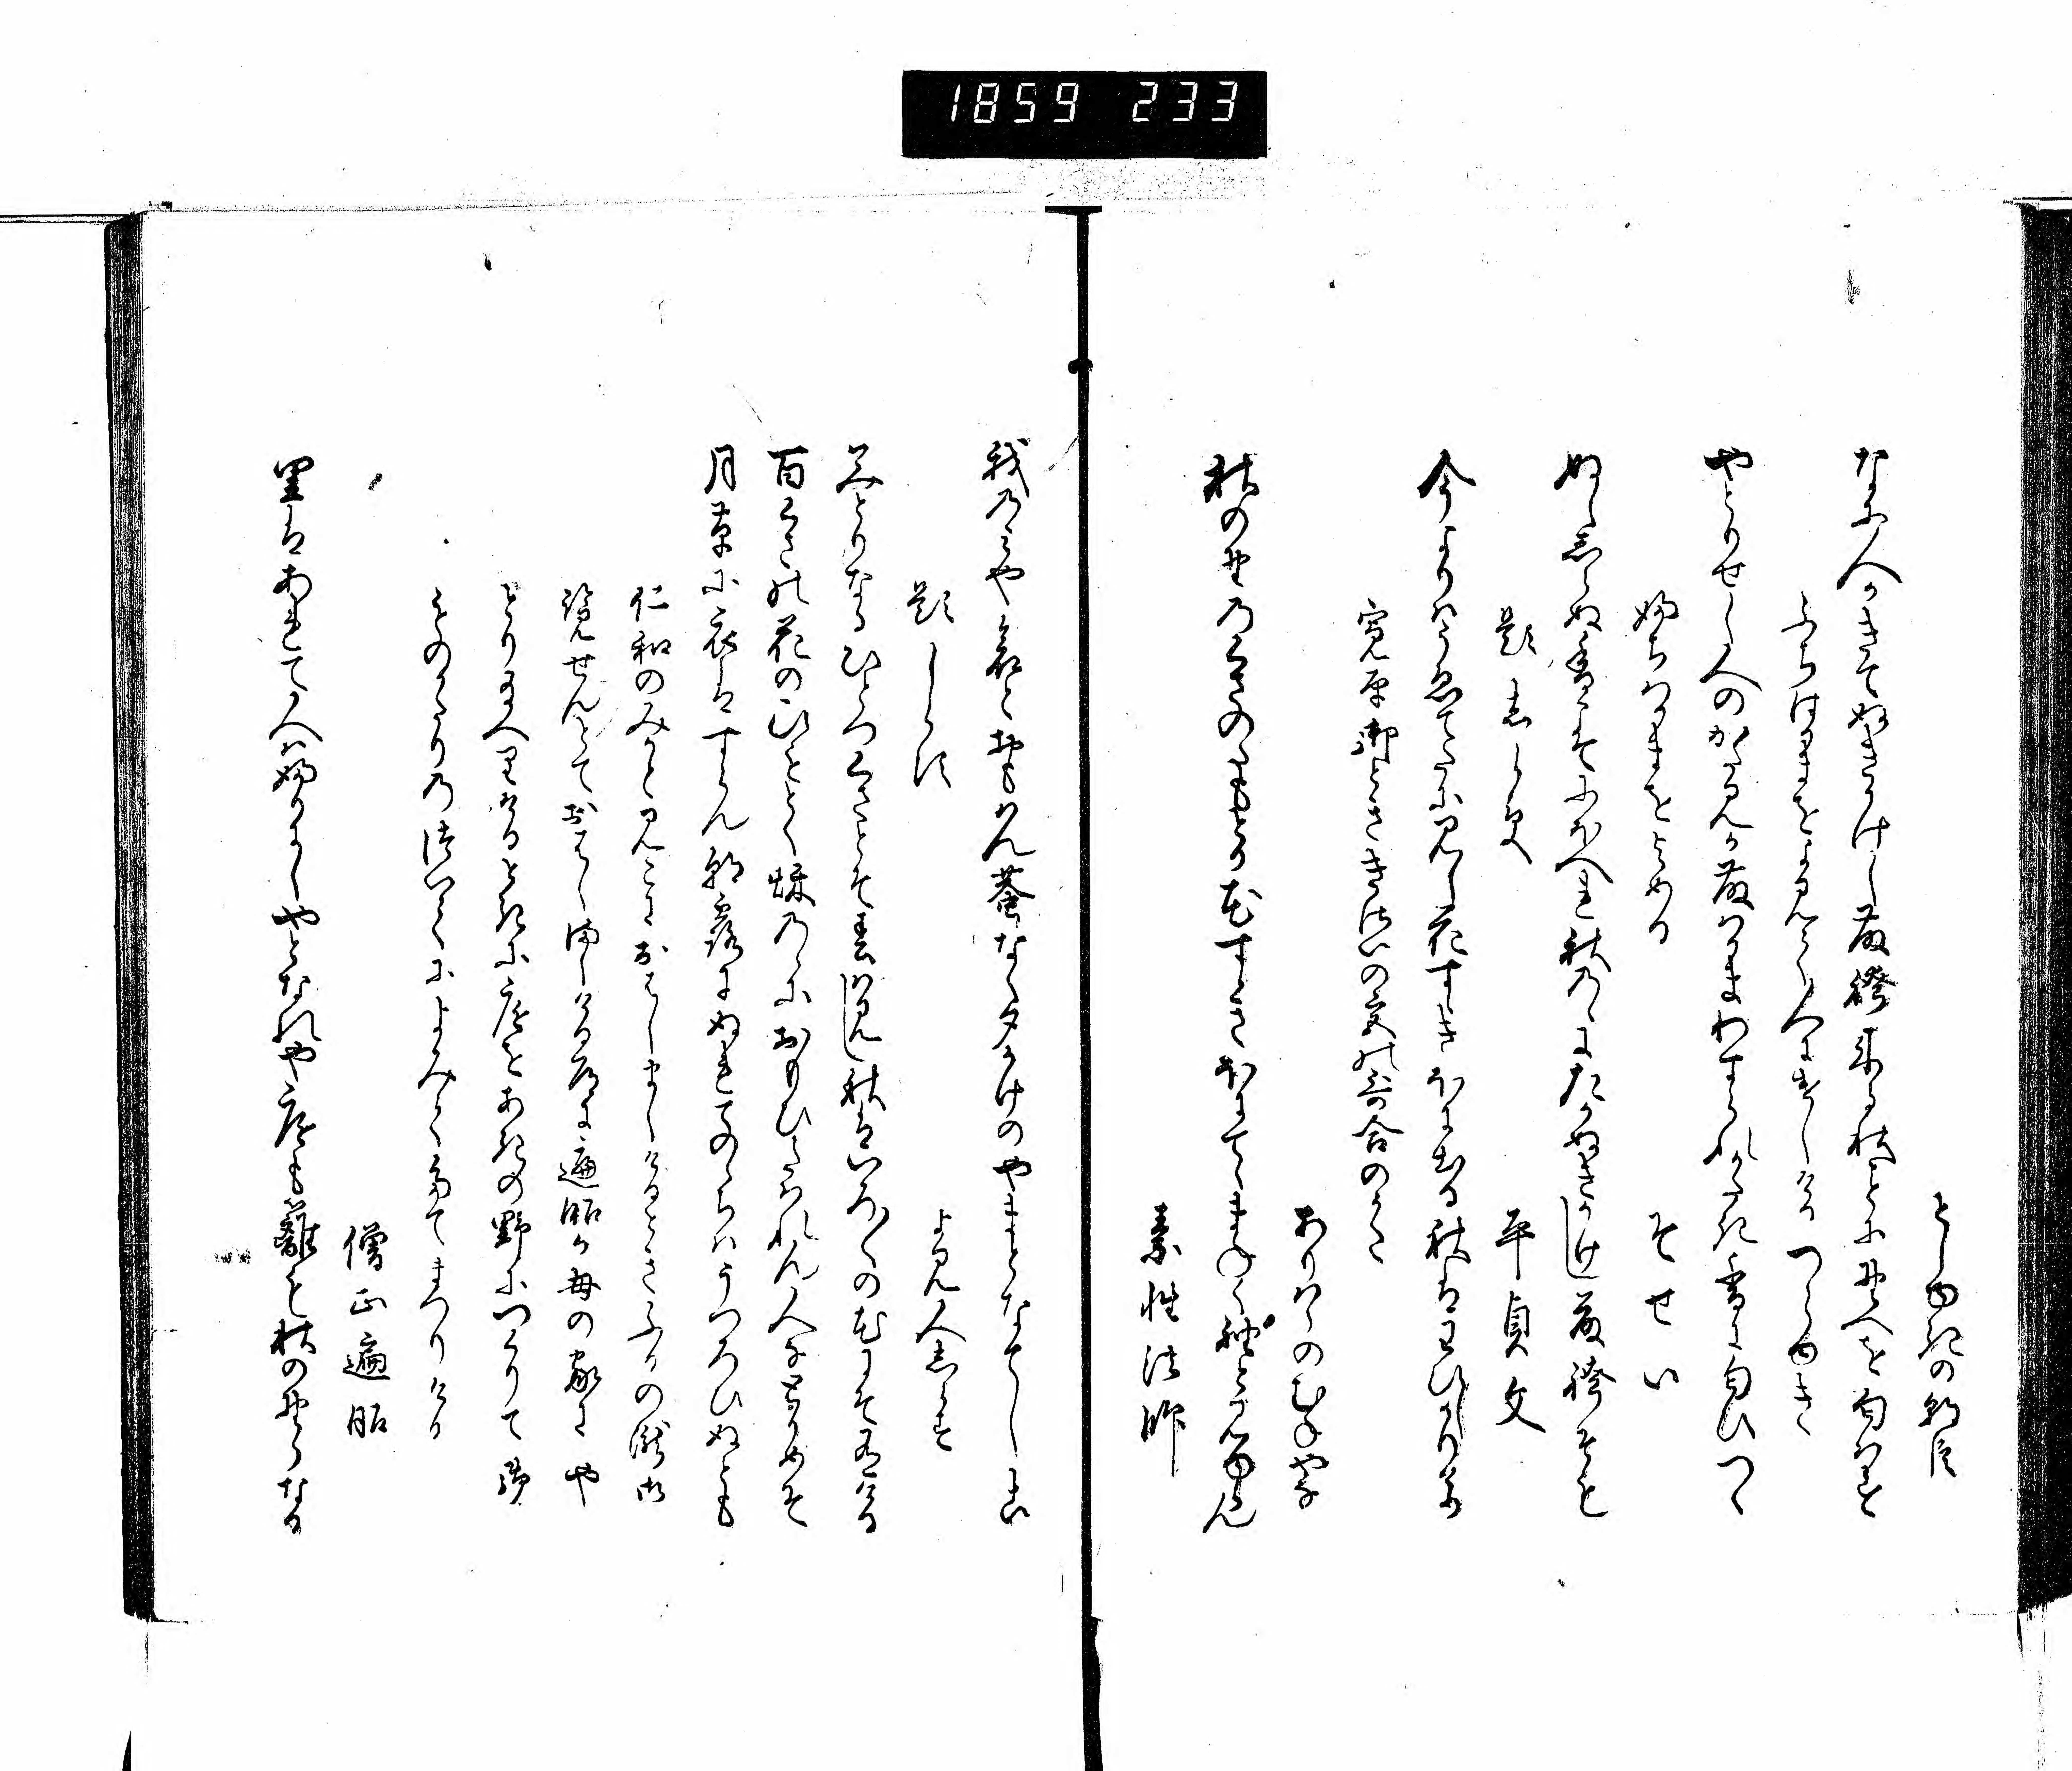 1859 233
としゆきの朝臣
なに人かきてぬきかけし藤袴来る秋ことに野へを匂はす
ふちはかまをよみて人につかはしける つらゆき
やとりせし人のかたみか藤はかまわすられかたき香に匂ひつゝ
ふちはかまをよめる そせい
ぬししらぬ香こそにほへれ秋のゝにたかぬきかけし藤袴そも
題しらす 平貞文
今よりはうゑてたに見し花すゝきほに出る秋はわひしかりけり
寛平御とききさいの宮の哥合のうた
ありはらのむねやな
秋の野の草のたもとか花すゝきほにいてゝまねく袖とみゆらん
素性法師
我のみや哀とおもはん蛬なく夕かけのやまとなてしこ
題しらす よみ人しらす
みとりなるひとつ草とそ春は見し秋はいろ〱の花にそ有ける
百くさの花のひもとく秌のゝにおもひたはれん人なとかめそ
月草に衣はすらん朝露にぬれてのゝちはうつろひぬとも
仁和のみかとみこにおはしましけるときふるの瀧御
覧せんとておはしましける道に遍昭か母の家にや
とり給へりけるときに庭をあきの野につくりて御
ものかたりのつゐてによみてたてまつりける
僧正遍昭
里はあれて人はふりにしやとなれや庭も籬も秋の野らなる